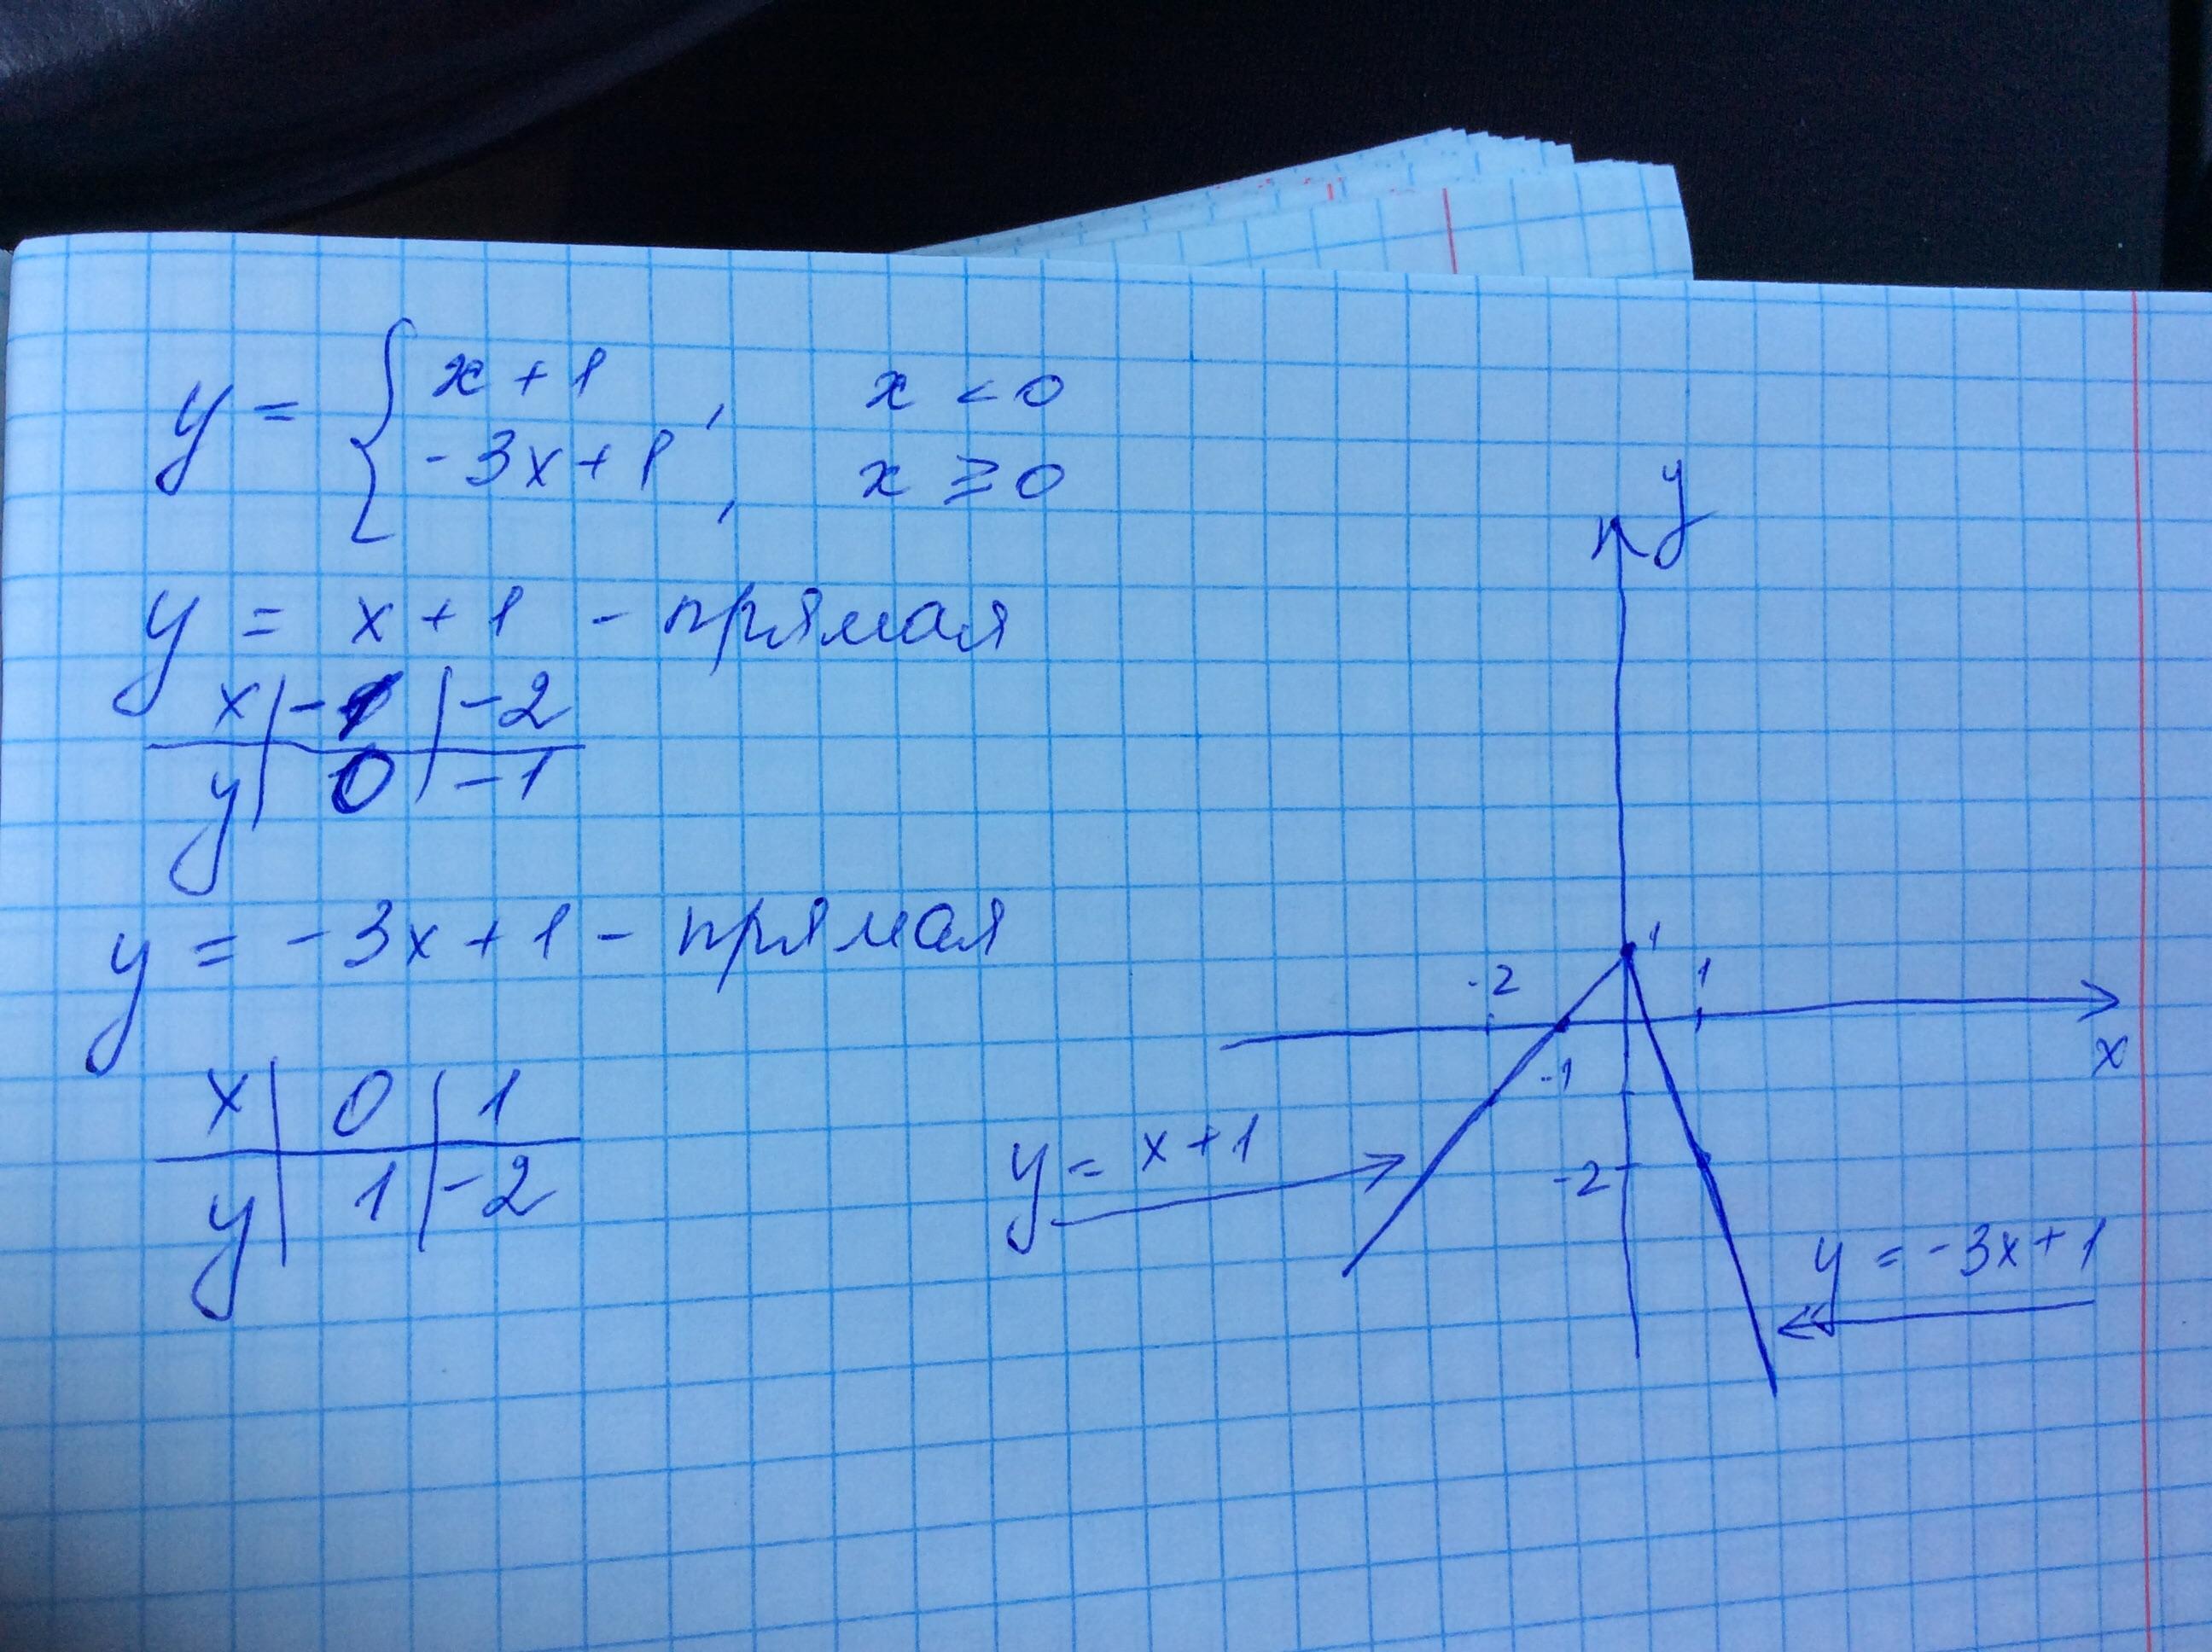 y = { x + 1 , x < 0
-3x + 1 , x ≥ 0
y = x + 1 - прямая
x | -1 | -2
y | 0 | -1
y = -3x + 1 - прямая
x | 0 | 1
y | 1 | -2
y
1
-2 1
x
-1
-2
y = x + 1
y = -3x + 1